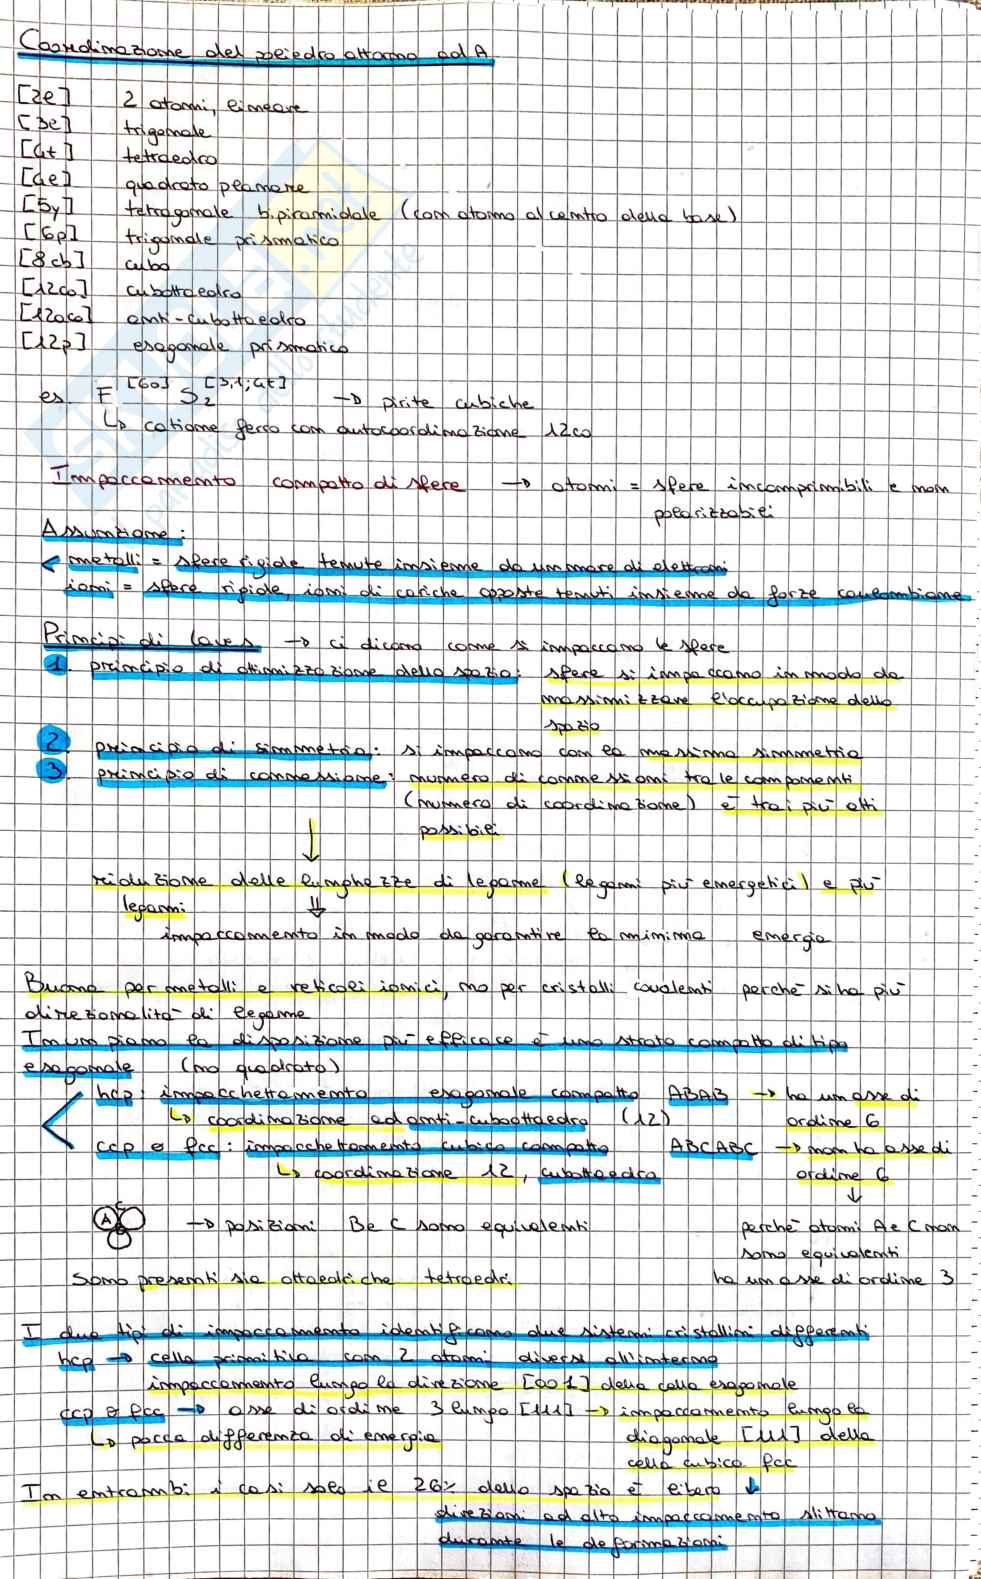 Coordinazione del poliedro attorno ad A
[2l] 2 atomi, lineare
[3l] trigonale
[4t] tetraedro
[4l] quadrato planare
[5y] tetragonale bipiramidale (con atomo al centro della base)
[6p] trigonale prismatico
[8cb] cubo
[12co] cubottaedro
[12aco] anti-cubottaedro
[12p] esagonale prismatico
es. F [6o] S2 [3,1;4t] → pirite cubiche
↳ catione ferro con autocoordinazione 12co
Impaccamento compatto di sfere → atomi = sfere incomprimibili e non
polarizzabili
Assunzione:
metalli = sfere rigide tenute insieme da un mare di elettroni
ioni = sfere rigide, ioni di cariche opposte tenuti insieme da forze coulombiane
Principi di Laves → ci dicono come si impaccano le sfere
1. principio di ottimizzazione dello spazio: sfere si impaccano in modo da
massimizzare l'occupazione dello
spazio
2. principio di simmetria: si impaccano con la massima simmetria
3. principio di connessione: numero di connessioni tra le componenti
(numero di coordinazione) è tra i più alti
possibili
↓
riduzione delle lunghezze di legame (legami più energetici) e più
legami
⇓
impaccamento in modo da garantire la minima energia
Buono per metalli e reticoli ionici, no per cristalli covalenti perché si ha più
direzionalità di legame
In un piano la disposizione più efficace è uno strato compatto di tipo
esagonale (no quadrato)
hcp: impacchettamento esagonale compatto ABAB → ha un asse di
↳ coordinazione ad anti-cuboottaedro (12) ordine 6
ccp o fcc: impacchettamento cubico compatto ABCABC → non ha asse di
↳ coordinazione 12, cubottaedro ordine 6
↓
A C B → posizioni B e C sono equivalenti perché atomi A e C non
sono equivalenti
Sono presenti sia ottaedri che tetraedri ha un asse di ordine 3
I due tipi di impaccamento identificano due sistemi cristallini differenti
hcp → cella primitiva con 2 atomi diversi all'interno
impaccamento lungo la direzione [001] della cella esagonale
ccp o fcc → asse di ordine 3 lungo [111] → impaccamento lungo la
↳ pocca differenza di energia diagonale [111] della
cella cubica fcc
In entrambi i casi solo il 26% dello spazio è libero ↓
direzioni ad alto impaccamento slittano
durante le deformazioni